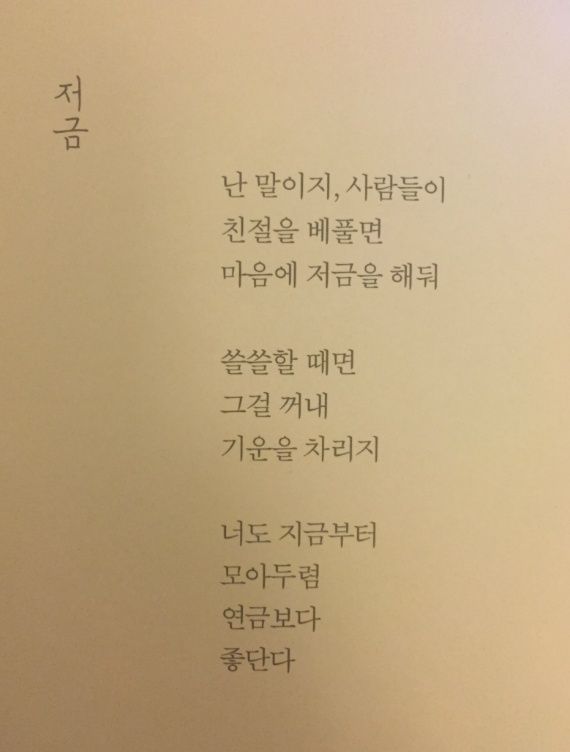 저금
난 말이지, 사람들이
친절을 베풀면
마음에 저금을 해둬
쓸쓸할 때면
그걸 꺼내
기운을 차리지
너도 지금부터
모아두렴
연금보다
좋단다